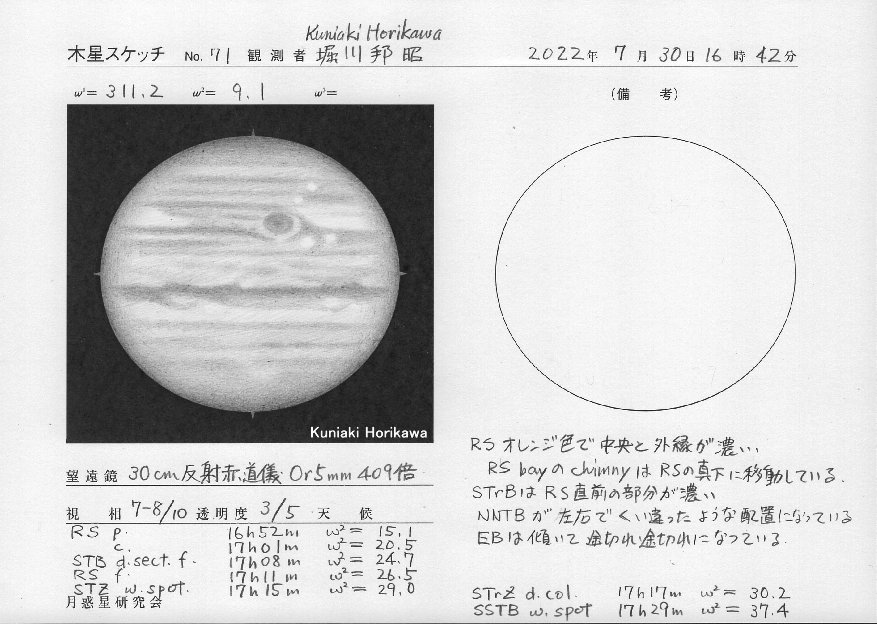 Kuniaki Horikawa
木星スケッチ No. 71 観測者 堀川邦昭 2022年 7月30日16時42分
ω¹= 311.2 ω²= 9.1 ω³=
(備 考)
Kuniaki Horikawa
望遠鏡 30cm反射赤道儀 Or5mm 409倍
視 相 7-8/10 透明度 3/5 天 候
RS p. 16h52m ω²= 15.1
c. 17h01m ω²= 20.5
STB d.sect.f. 17h08m ω²= 24.7
RS f. 17h11m ω²= 26.5
STZ w.spot. 17h15m ω²= 29.0
月惑星研究会
RS オレンジ色で中央と外縁が濃い、
RS bayのchimnyはRSの真下に移動している.
STrBはRS直前の部分が濃い
NNTBが左右でくい違ったような配置になっている
EBは傾いて途切れ途切れになっている.
STrZ d.col. 17h17m ω²= 30.2
SSTB w.spot 17h29m ω²= 37.4